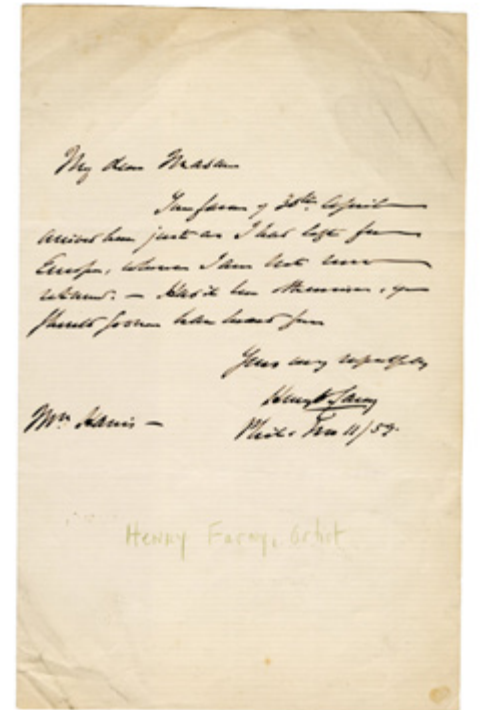 My dear Madam
Your favor of 30th April
arrived here just as I had left for
Europe, whence I have but now
returned. — Had it been otherwise, you
should sooner have heard from
Yours very respectfully
Henry
Mrs Harris —
Phila. 11/59.
Henry Farny, artist